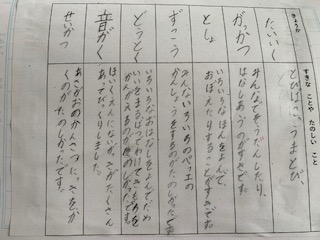 きょうか
すきな ことや たのしい こと
たいいく
とびばこ、うまとび、
がっかつ
みんなでそうだんしたり、
はなしあうのがすきです。
としょ
いろいろなほんをよんで、
おぼえたりすることがすきです。
ずっこう
みんないろいろのペアの
かんしょうをするのがたのしかったです
どうとく
いろいろなおはなしをよんで、だめ
いいをまるばつでわけてきもちを
かんがえるのが楽しかったです。
音がく
ほいくえんにないがっきがたくさん
あってびっくりしました。
せいかつ
あさがおのかんさつに、きをか
くのがたのしかったです。